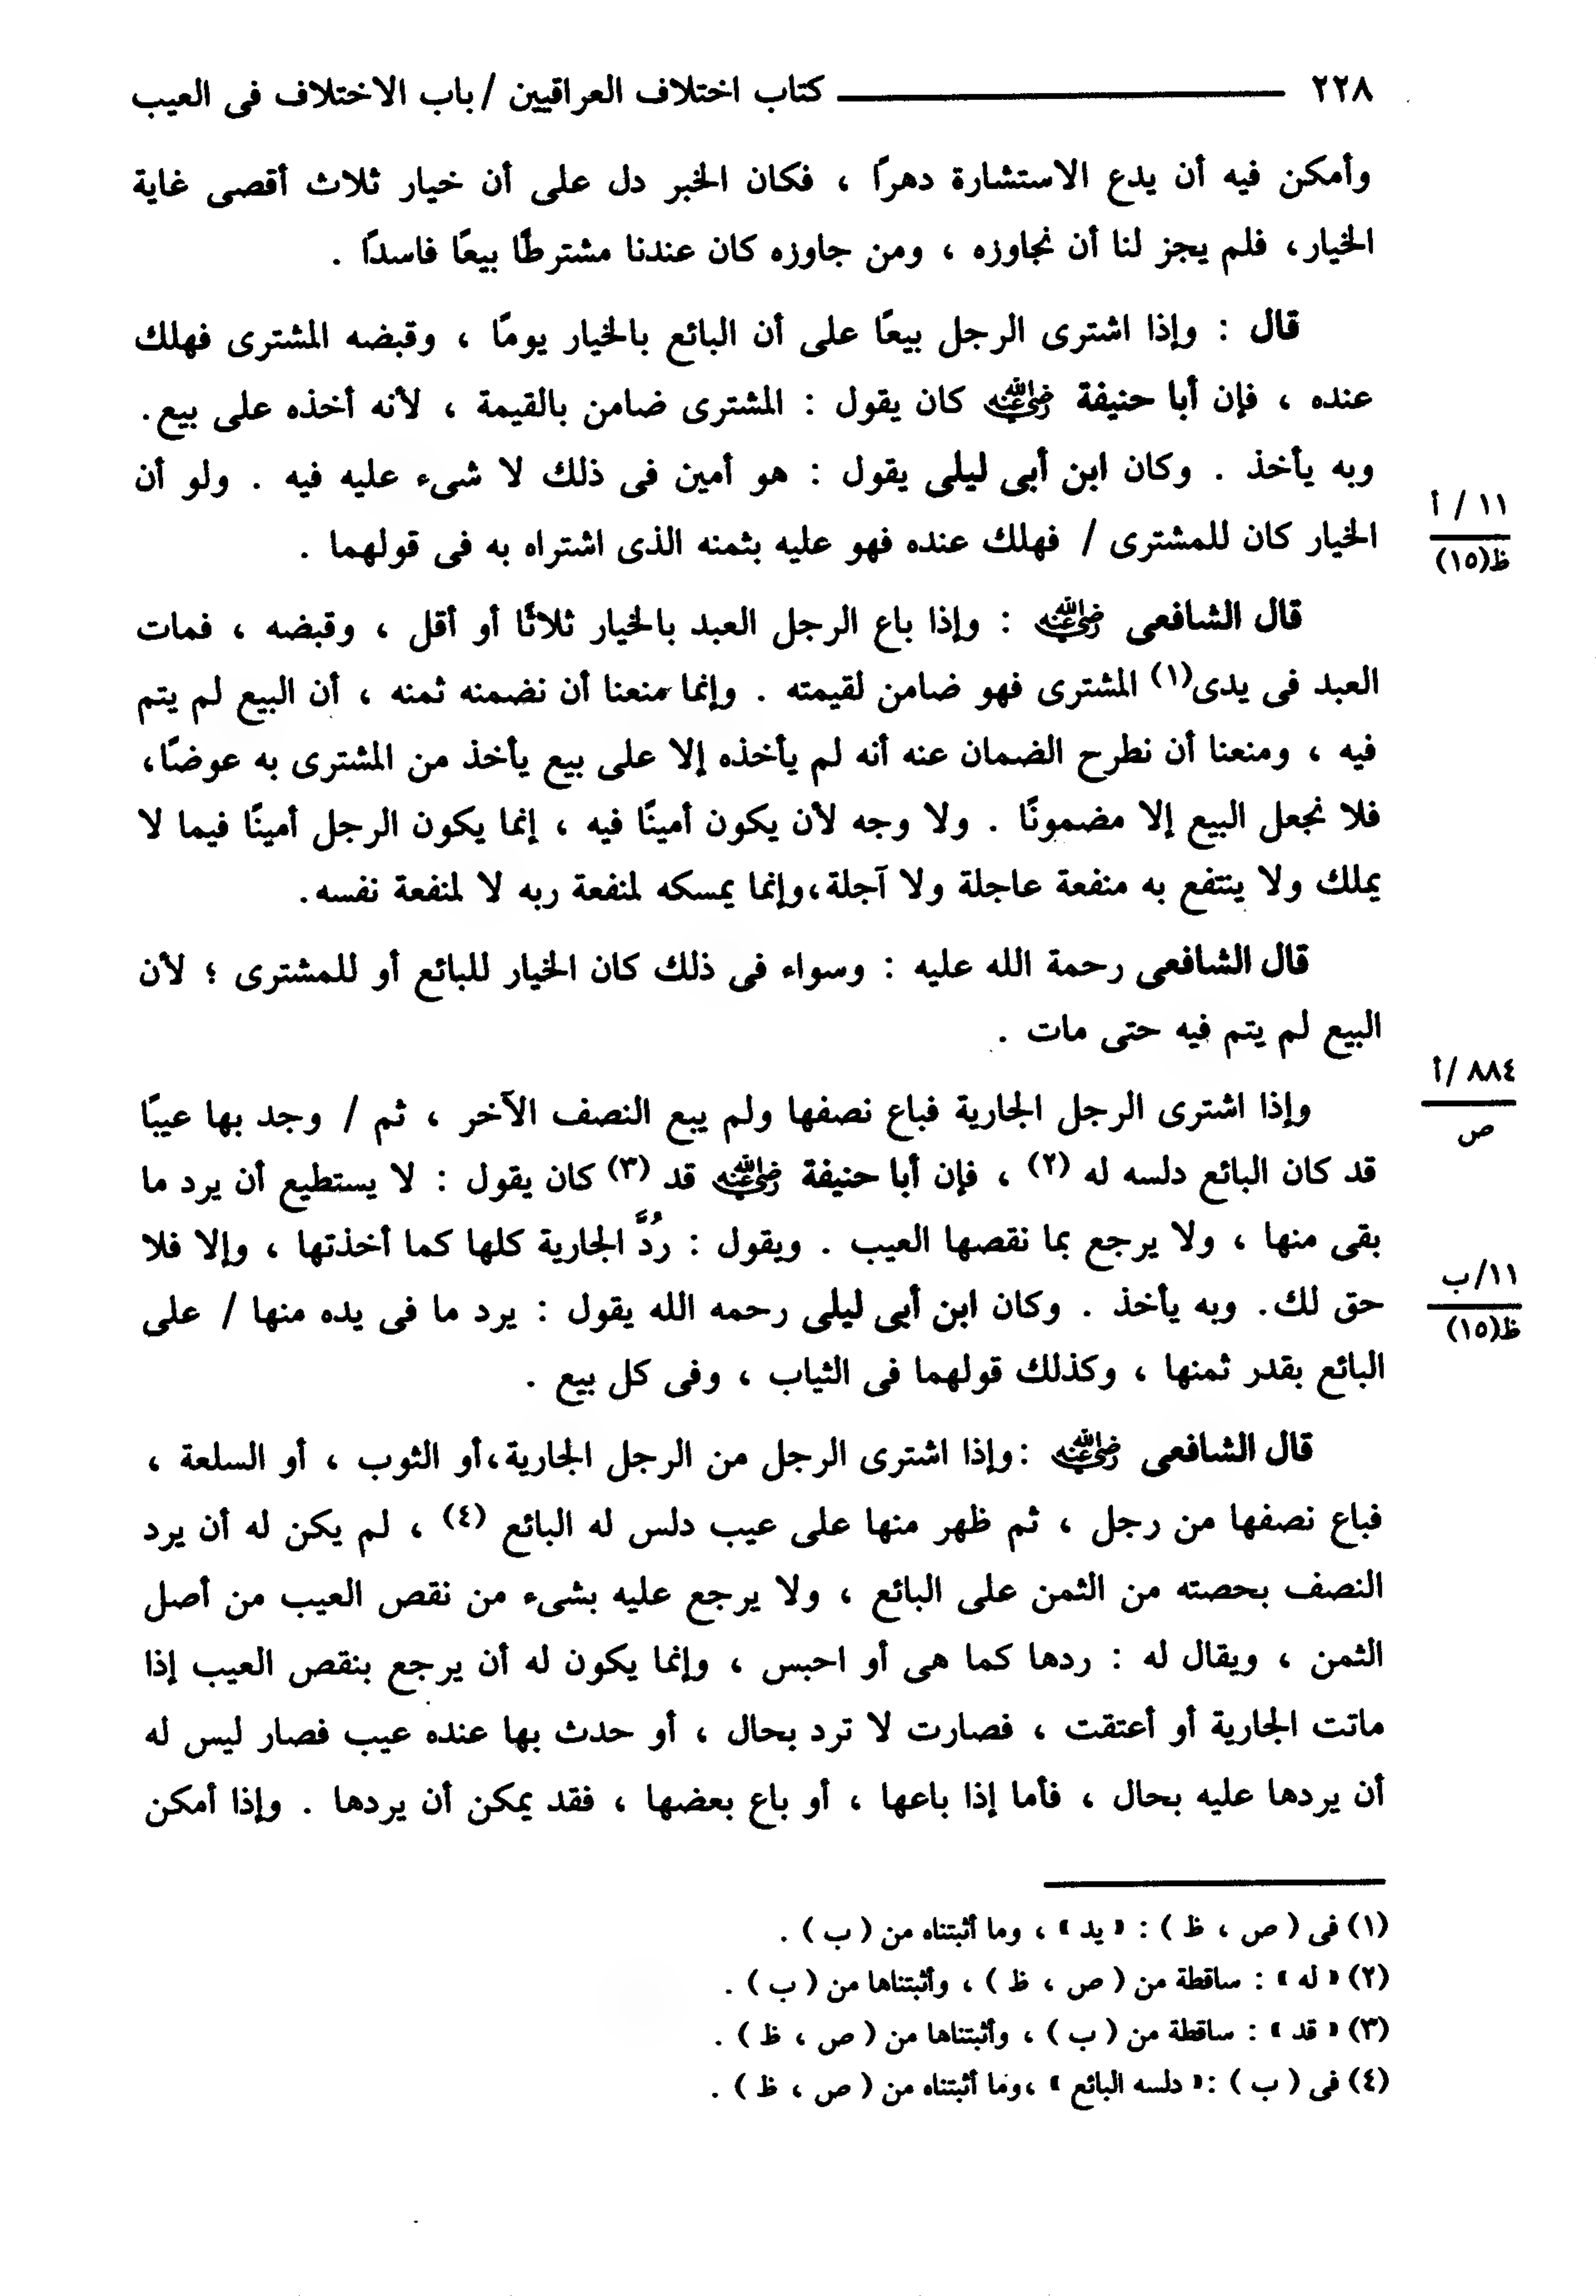 ٢٢٨ ــــــــــ كتاب اختلاف العراقيين / باب الاختلاف فى العيب
وأمكن فيه أن يدع الاستشارة دهرًا ، فكان الخبر دل على أن خيار ثلاث أقصى غاية
الخيار، فلم يجز لنا أن نجاوزه ، ومن جاوزه كان عندنا مشترطًا بيعًا فاسدًا .
قال : وإذا اشترى الرجل بيعًا على أن البائع بالخيار يومًا ، وقبضه المشترى فهلك
عنده ، فإن أبا حنيفة رضي الله عنه كان يقول : المشترى ضامن بالقيمة ، لأنه أخذه على بيع.
وبه يأخذ . وكان ابن أبى ليلى يقول : هو أمين فى ذلك لا شىء عليه فيه . ولو أن
١١ / أ
ظ(١٥)
الخيار كان للمشترى / فهلك عنده فهو عليه بثمنه الذى اشتراه به فى قولهما .
قال الشافعى رضي الله عنه : وإذا باع الرجل العبد بالخيار ثلاثًا أو أقل ، وقبضه ، فمات
العبد فى يدى(١) المشترى فهو ضامن لقيمته . وإنما منعنا أن نضمنه ثمنه ، أن البيع لم يتم
فيه ، ومنعنا أن نطرح الضمان عنه أنه لم يأخذه إلا على بيع يأخذ من المشترى به عوضًا،
فلا نجعل البيع إلا مضمونًا . ولا وجه لأن يكون أمينًا فيه ، إنما يكون الرجل أمينًا فيما لا
يملك ولا ينتفع به منفعة عاجلة ولا آجلة،وإنما يمسكه لمنفعة ربه لا لمنفعة نفسه.
قال الشافعى رحمة الله عليه : وسواء فى ذلك كان الخيار للبائع أو للمشترى ؛ لأن
البيع لم يتم فيه حتى مات .
٨٨٤ /أ
ص
وإذا اشترى الرجل الجارية فباع نصفها ولم يبع النصف الآخر ، ثم / وجد بها عيبًا
قد كان البائع دلسه له (٢) ، فإن أبا حنيفة رضي الله عنه قد (٣) كان يقول : لا يستطيع أن يرد ما
بقى منها ، ولا يرجع بما نقصها العيب . ويقول : رُدَّ الجارية كلها كما أخذتها ، وإلا فلا
١١/ب
ظ(١٥)
حق لك. وبه يأخذ . وكان ابن أبى ليلى رحمه الله يقول : يرد ما فى يده منها / على
البائع بقدر ثمنها ، وكذلك قولهما فى الثياب ، وفى كل بيع .
قال الشافعى رضي الله عنه :وإذا اشترى الرجل من الرجل الجارية،أو الثوب ، أو السلعة ،
فباع نصفها من رجل ، ثم ظهر منها على عيب دلس له البائع (٤) ، لم يكن له أن يرد
النصف بحصته من الثمن على البائع ، ولا يرجع عليه بشىء من نقص العيب من أصل
الثمن ، ويقال له : ردها كما هى أو احبس ، وإنما يكون له أن يرجع بنقص العيب إذا
ماتت الجارية أو أعتقت ، فصارت لا ترد بحال ، أو حدث بها عنده عيب فصار ليس له
أن يردها عليه بحال ، فأما إذا باعها ، أو باع بعضها ، فقد يمكن أن يردها . وإذا أمكن
(١) فى ( ص ، ظ ) : « يد » ، وما أثبتناه من ( ب ) .
(٢) « له » : ساقطة من ( ص ، ظ ) ، وأثبتناها من ( ب ) .
(٣) « قد » : ساقطة من ( ب ) ، وأثبتناها من ( ص ، ظ ) .
(٤) فى ( ب ) :« دلسه البائع » ،وما أثبتناه من ( ص ، ظ ) .